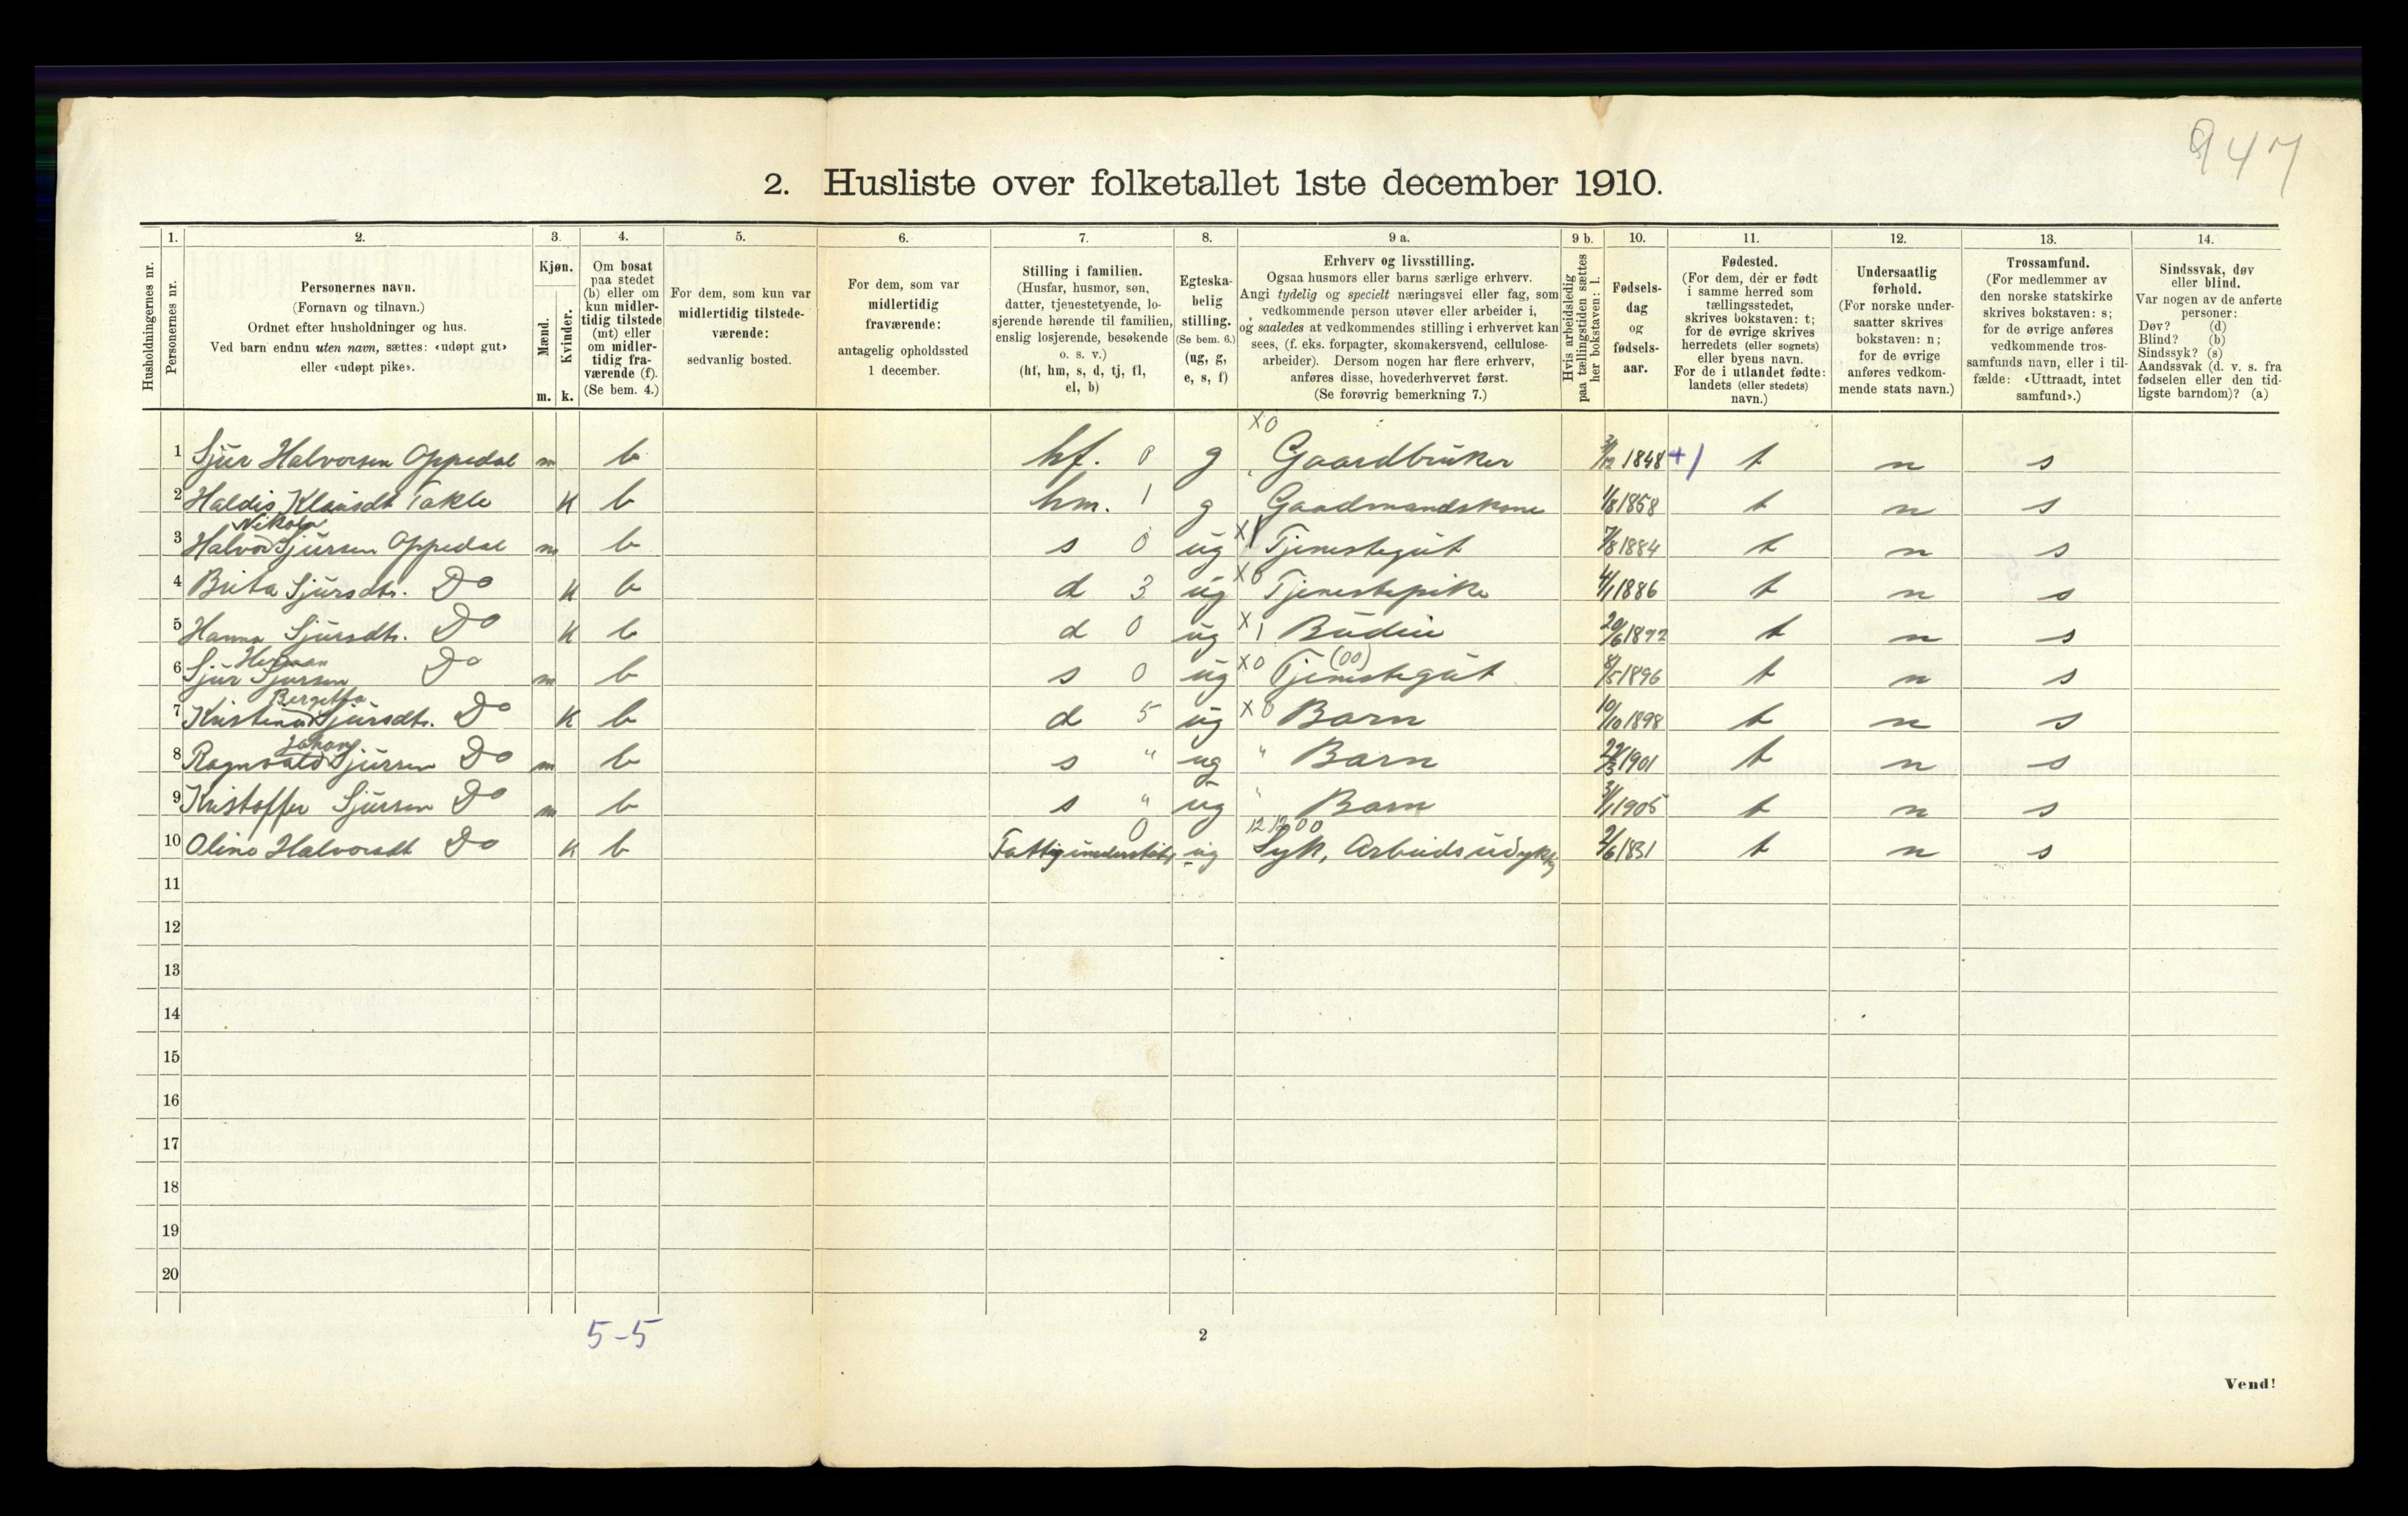 947
2. Husliste over folketallet 1ste december 1910.
Husholdningernes nr.
1. Personernes nr.
2. Personernes navn.
(Fornavn og tilnavn.)
Ordnet efter husholdninger og hus.
Ved barn endnu uten navn, sættes: «udøpt gut»
eller «udøpt pike».
3. Kjøn.
Mænd. m.
Kvinder. k.
4. Om bosat
paa stedet
(b) eller om
kun midler-
tidig tilstede
(mt) eller
om midler-
tidig fra-
værende (f).
(Se bem. 4.)
5. For dem, som kun var
midlertidig tilstede-
værende:
sedvanlig bosted.
6. For dem, som var
midlertidig
fraværende:
antagelig opholdssted
1 december.
7. Stilling i familien.
(Husfar, husmor, søn,
datter, tjenestetyende, lo-
sjerende hørende til familien,
enslig losjerende, besøkende
o. s. v.)
(hf, hm, s, d, tj, fl,
el, b)
8. Egteska-
belig
stilling.
(Se bem. 6.)
(ug, g,
e, s, f)
9 a. Erhverv og livsstilling.
Ogsaa husmors eller barns særlige erhverv.
Angi tydelig og specielt næringsvei eller fag, som
vedkommende person utøver eller arbeider i,
og saaledes at vedkommendes stilling i erhvervet kan
sees, (f. eks. forpagter, skomakersvend, cellulose-
arbeider). Dersom nogen har flere erhverv,
anføres disse, hovederhvervet først.
(Se forøvrig bemerkning 7.)
9 b. Hvis arbeidsledig
paa tællingstiden sættes
her bokstaven: l.
10. Fødsels-
dag
og
fødsels-
aar.
11. Fødested.
(For dem, der er født
i samme herred som
tællingsstedet,
skrives bokstaven: t;
for de øvrige skrives
herredets (eller sognets)
eller byens navn.
For de i utlandet fødte:
landets (eller stedets)
navn.)
12. Undersaatlig
forhold.
(For norske under-
saatter skrives
bokstaven: n;
for de øvrige
anføres vedkom-
mende stats navn.)
13. Trossamfund.
(For medlemmer av
den norske statskirke
skrives bokstaven: s;
for de øvrige anføres
vedkommende tros-
samfunds navn, eller i til-
fælde: «Uttraadt, intet
samfund».)
14. Sindssvak, døv
eller blind.
Var nogen av de anførte
personer:
Døv? (d)
Blind? (b)
Sindssyk? (s)
Aandssvak (d. v. s. fra
fødselen eller den tid-
ligste barndom)? (a)
X0
1 Sjur Halvorsen Oppedal m b hf. 0 g Gaardbruker 1848 +1 t n s
2 Haldis Klausdt Takle k b hm. 1 g Gaadmandskone 1/8 1858 t n s
Nikolai
3 Halvor Sjursen Oppedal m b s 0 ug X1 Tjenestegut 7/8 1884 t n s
4 Brita Sjursdtr. Do k b d 3 ug X0 Tjenestepike 4/1 1886 t n s
5 Hanna Sjursdtr. Do k b d 0 ug X1 Budeie 20/6 1892 t n s
Herman (00)
6 Sjur Sjursen Do m b s 0 ug X0 Tjenestegut 8/5 1896 t n s
Bergitha
7 Kristina Sjursdtr. Do k b d 5 ug X0 Barn 10/10 1898 t n s
Johan
8 Ragnvald Sjursen Do m b s " ug " Barn 1901 t n s
9 Kristoffer Sjursen Do m b s " ug " Barn 1905 t n s
0 12 12 00
10 Oline Halvorsdt Do k b Fattigunderstøt ug Syk, Arbeidsudyktig 2/6 1831 t n s
11
12
13
14
15
16
17
18
19
20
5-5
2
Vend!